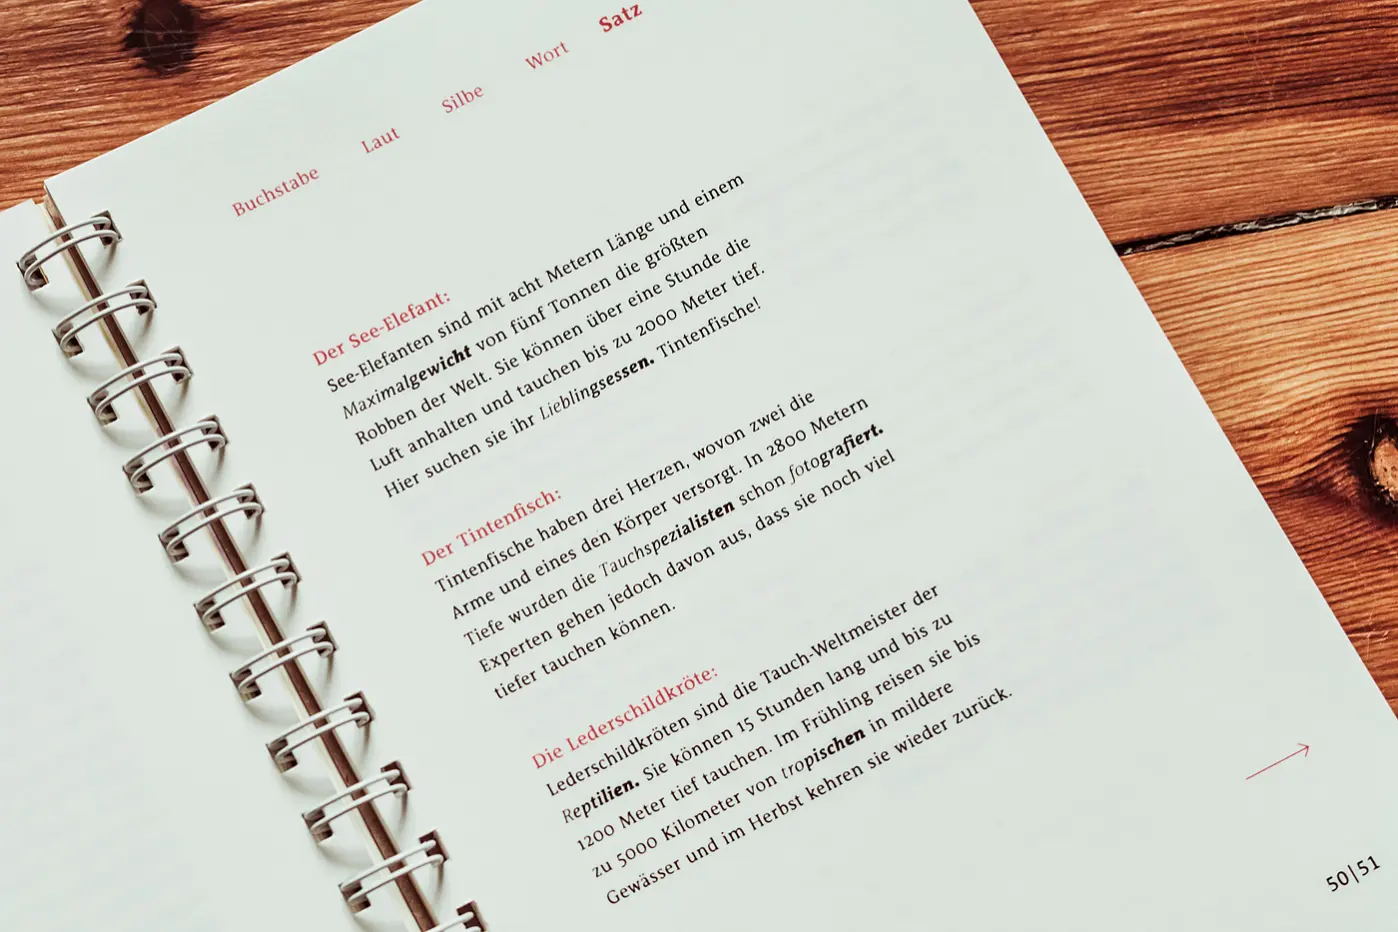 Buchstabe Laut Silbe Wort Satz
Der See-Elefant:
See-Elefanten sind mit acht Metern Länge und einem
Maximalgewicht von fünf Tonnen die größten
Robben der Welt. Sie können über eine Stunde die
Luft anhalten und tauchen bis zu 2000 Meter tief.
Hier suchen sie ihr Lieblingsessen. Tintenfische!
Der Tintenfisch:
Tintenfische haben drei Herzen, wovon zwei die
Arme und eines den Körper versorgt. In 2800 Metern
Tiefe wurden die Tauchspezialisten schon fotografiert.
Experten gehen jedoch davon aus, dass sie noch viel
tiefer tauchen können.
Die Lederschildkröte:
Lederschildkröten sind die Tauch-Weltmeister der
Reptilien. Sie können 15 Stunden lang und bis zu
1200 Meter tief tauchen. Im Frühling reisen sie bis
zu 5000 Kilometer von tropischen in mildere
Gewässer und im Herbst kehren sie wieder zurück.
50|51